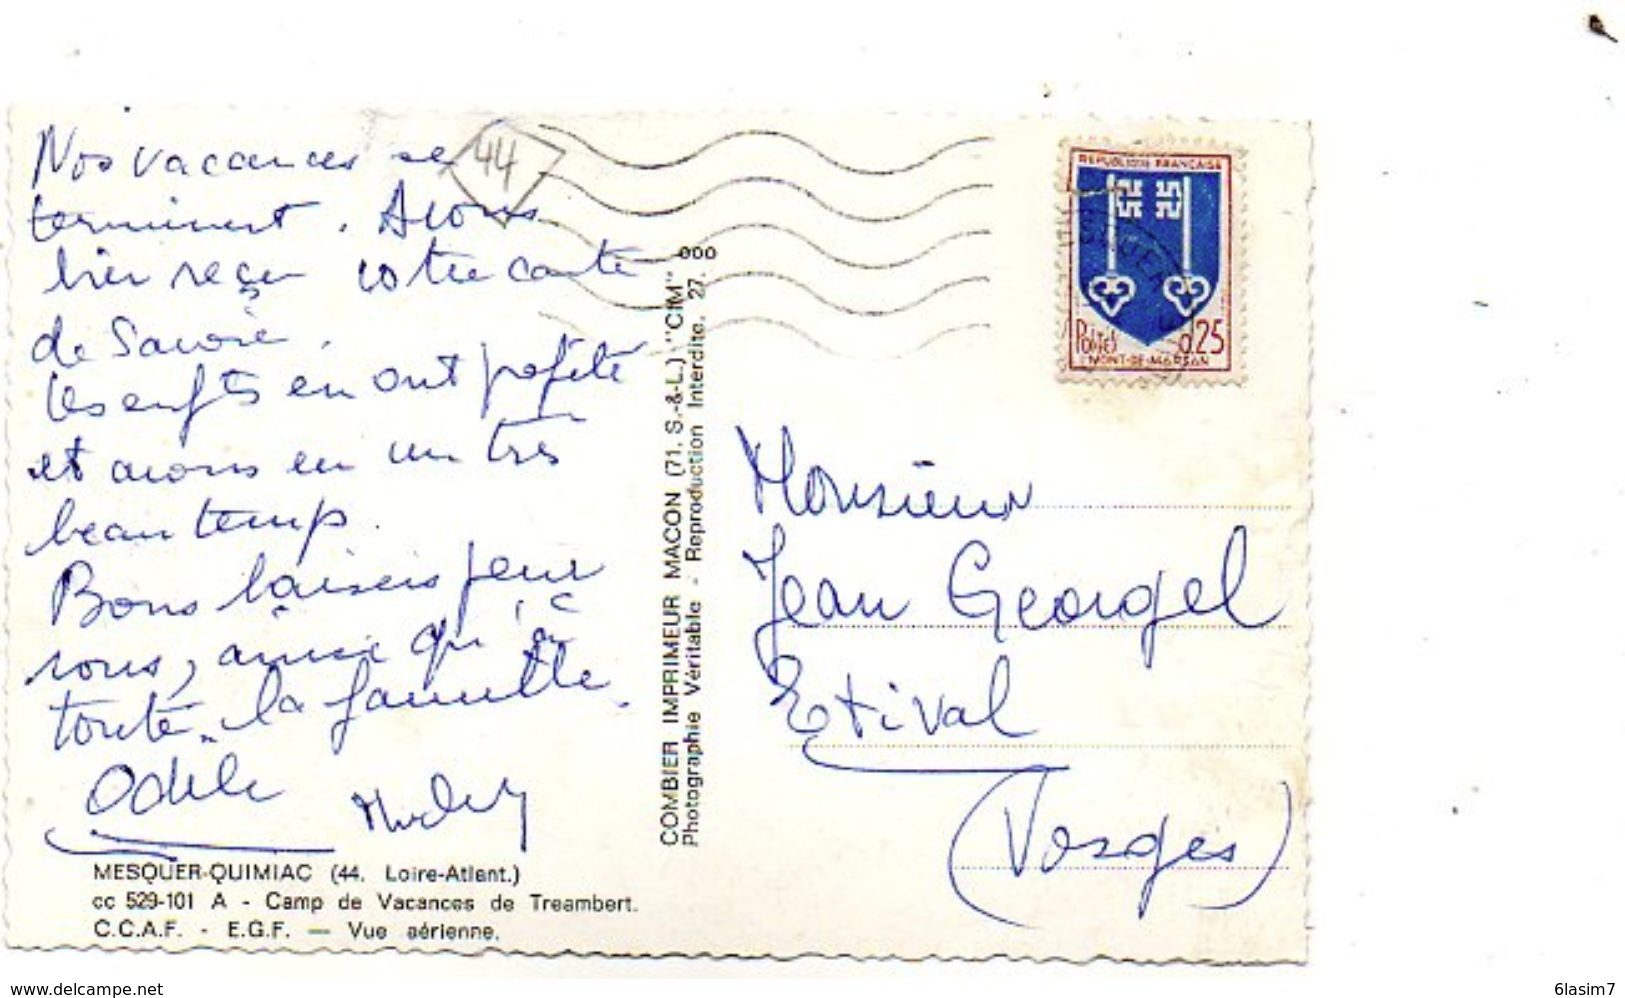 Nos vacances se
terminent. Avons
hier reçu votre carte
de Savoie.
Les enfts en ont profité
et avons eu un très
beau temps.
Bons baisers pour
vous, ainsi qu'à
toute la famille.
Odile
44
MESQUER-QUIMIAC (44. Loire-Atlant.)
cc 529-101 A - Camp de Vacances de Treambert.
C.C.A.F. - E.G.F. — Vue aérienne.
COMBIER IMPRIMEUR MACON (71. S.-&-L.) "CIM"
Photographie Véritable - Reproduction Interdite. 27.
REPUBLIQUE FRANÇAISE
Postes 0,25
MONT-DE-MARSAN
Monsieur
Jean Georgel
Etival
(Vosges)
www.delcampe.net
6lasim7